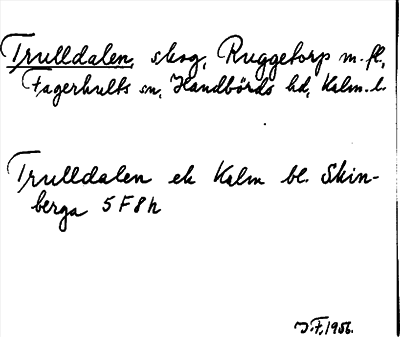 Trulldalen, skog, Ruggetorp m.fl,
Fagerhults sn, Handbörds hd, Kalm. l.
Trulldalen ek Kalm bl. Skin-
berga 5 F 8 h
J.F, 1956.